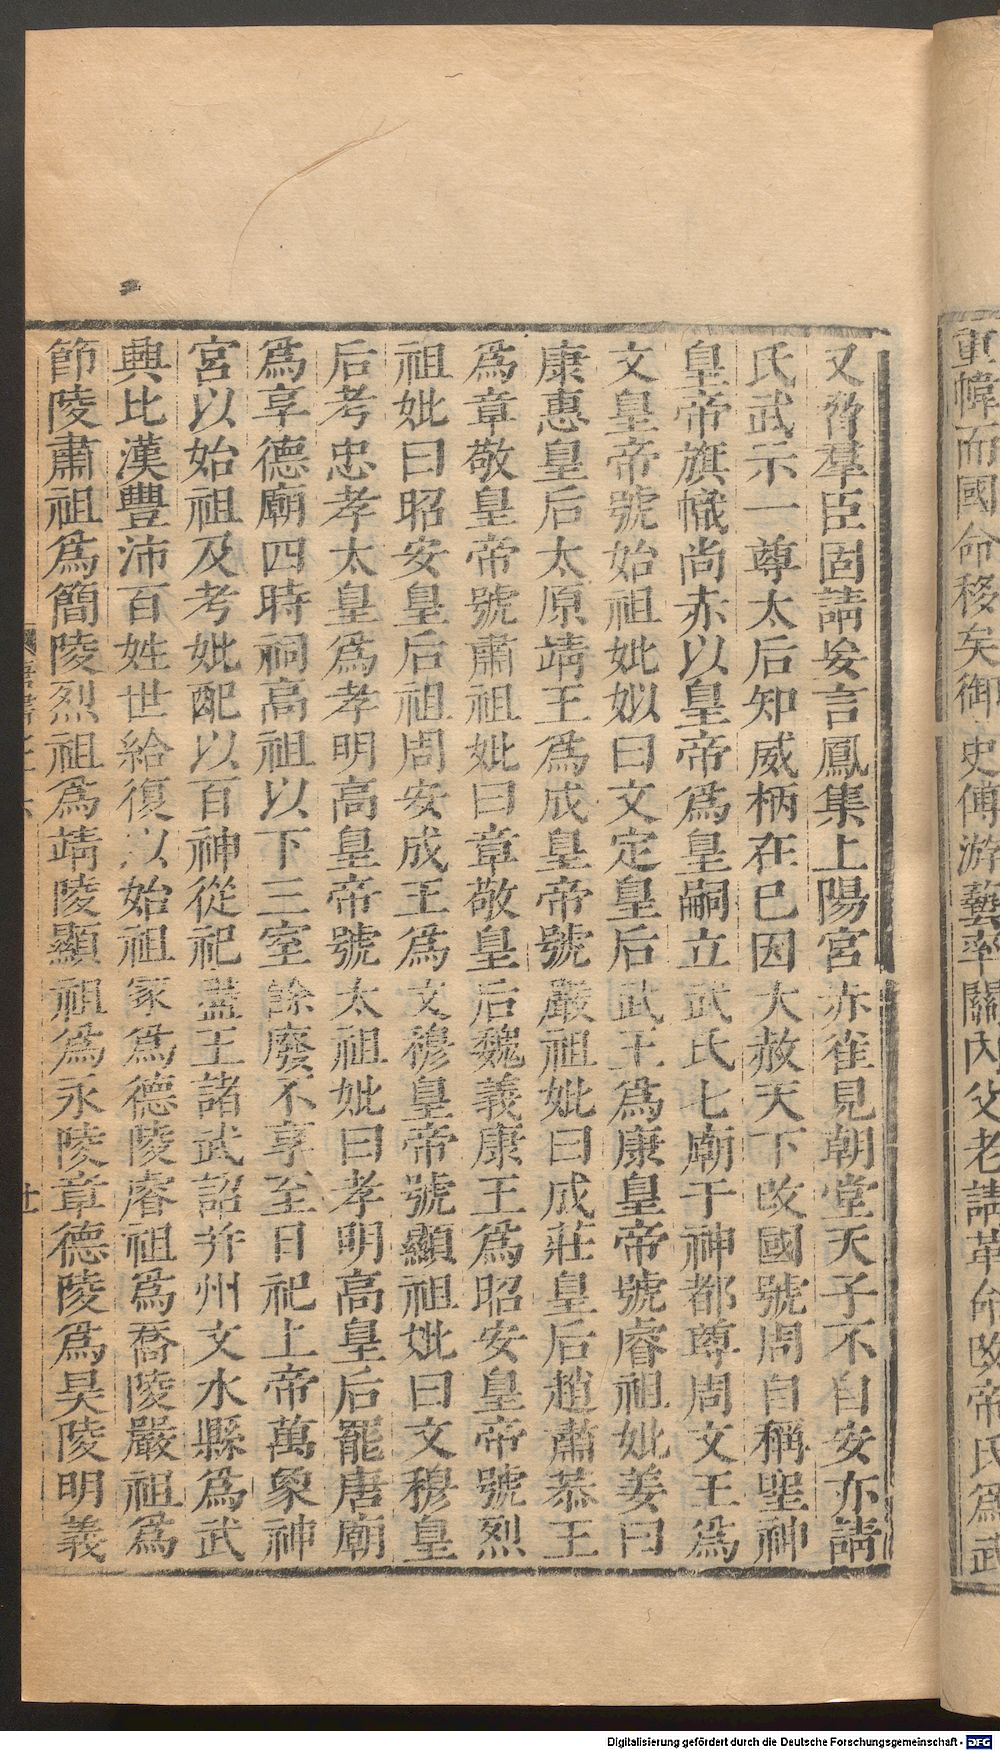 車幃而國命移矣御史傅游藝率關內父老請革命改帝氏爲武
又脅羣臣固請妄言鳳集上陽宮赤雀見朝堂天子不自安亦請
氏武示一尊太后知威柄在己因大赦天下改國號周自稱聖神
皇帝旗幟尚赤以皇帝爲皇嗣立武氏七廟于神都尊周文王爲
文皇帝號始祖妣姒曰文定皇后武王爲康皇帝號睿祖妣姜曰
康惠皇后太原靖王爲成皇帝號嚴祖妣曰成莊皇后趙肅恭王
爲章敬皇帝號肅祖妣曰章敬皇后魏義康王爲昭安皇帝號烈
祖妣曰昭安皇后祖周安成王爲文穆皇帝號顯祖妣曰文穆皇
后考忠孝太皇爲孝明高皇帝號太祖妣曰孝明高皇后罷唐廟
爲享德廟四時祠高祖以下三室餘廢不享至日祀上帝萬象神
宮以始祖及考妣配以百神從祀盡王諸武詔并州文水縣爲武
興比漢豐沛百姓世給復以始祖冢爲德陵睿祖爲喬陵嚴祖爲
節陵肅祖爲簡陵烈祖爲靖陵顯祖爲永陵章德陵爲昊陵明義
Digitalisierung gefördert durch die Deutsche Forschungsgemeinschaft - DFG